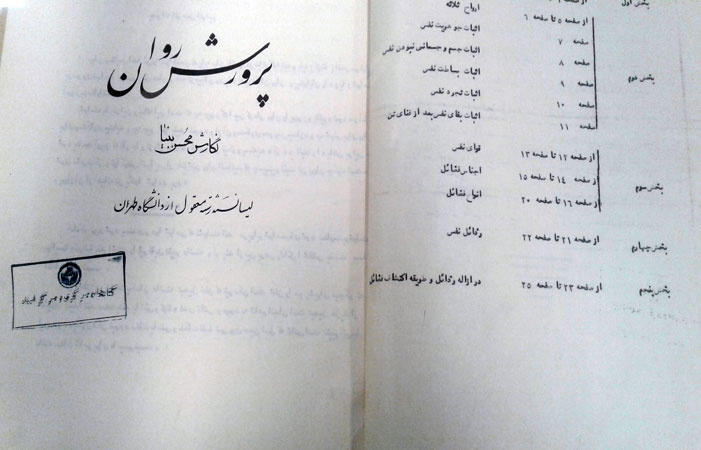 پرورش روان
نگارش محسن بینا
لیسانسته رشته معقول از دانشگاه طهران
کتابخانه
بخش اول
ارواح ثلاثه
بخش دوم
از صفحه ۵ تا صفحه ۶ اثبات جوهریت نفس
صفحه ۷ اثبات جسم و جسمانی نبودن نفس
صفحه ۸ اثبات بساطت نفس
صفحه ۹ اثبات تجرد نفس
صفحه ۱۰ اثبات بقای نفس بعد از فنای تن
صفحه ۱۱
بخش سوم
از صفحه ۱۲ تا صفحه ۱۳ قوای نفس
از صفحه ۱۴ تا صفحه ۱۵ اجناس فضائل
از صفحه ۱۶ تا صفحه ۲۰ انواع فضائل
بخش چهارم از صفحه ۲۱ تا صفحه ۲۲ رذائل نفس
بخش پنجم از صفحه ۲۳ تا صفحه ۲۵ در ازاله رذائل و طریقه اکتساب فضائل